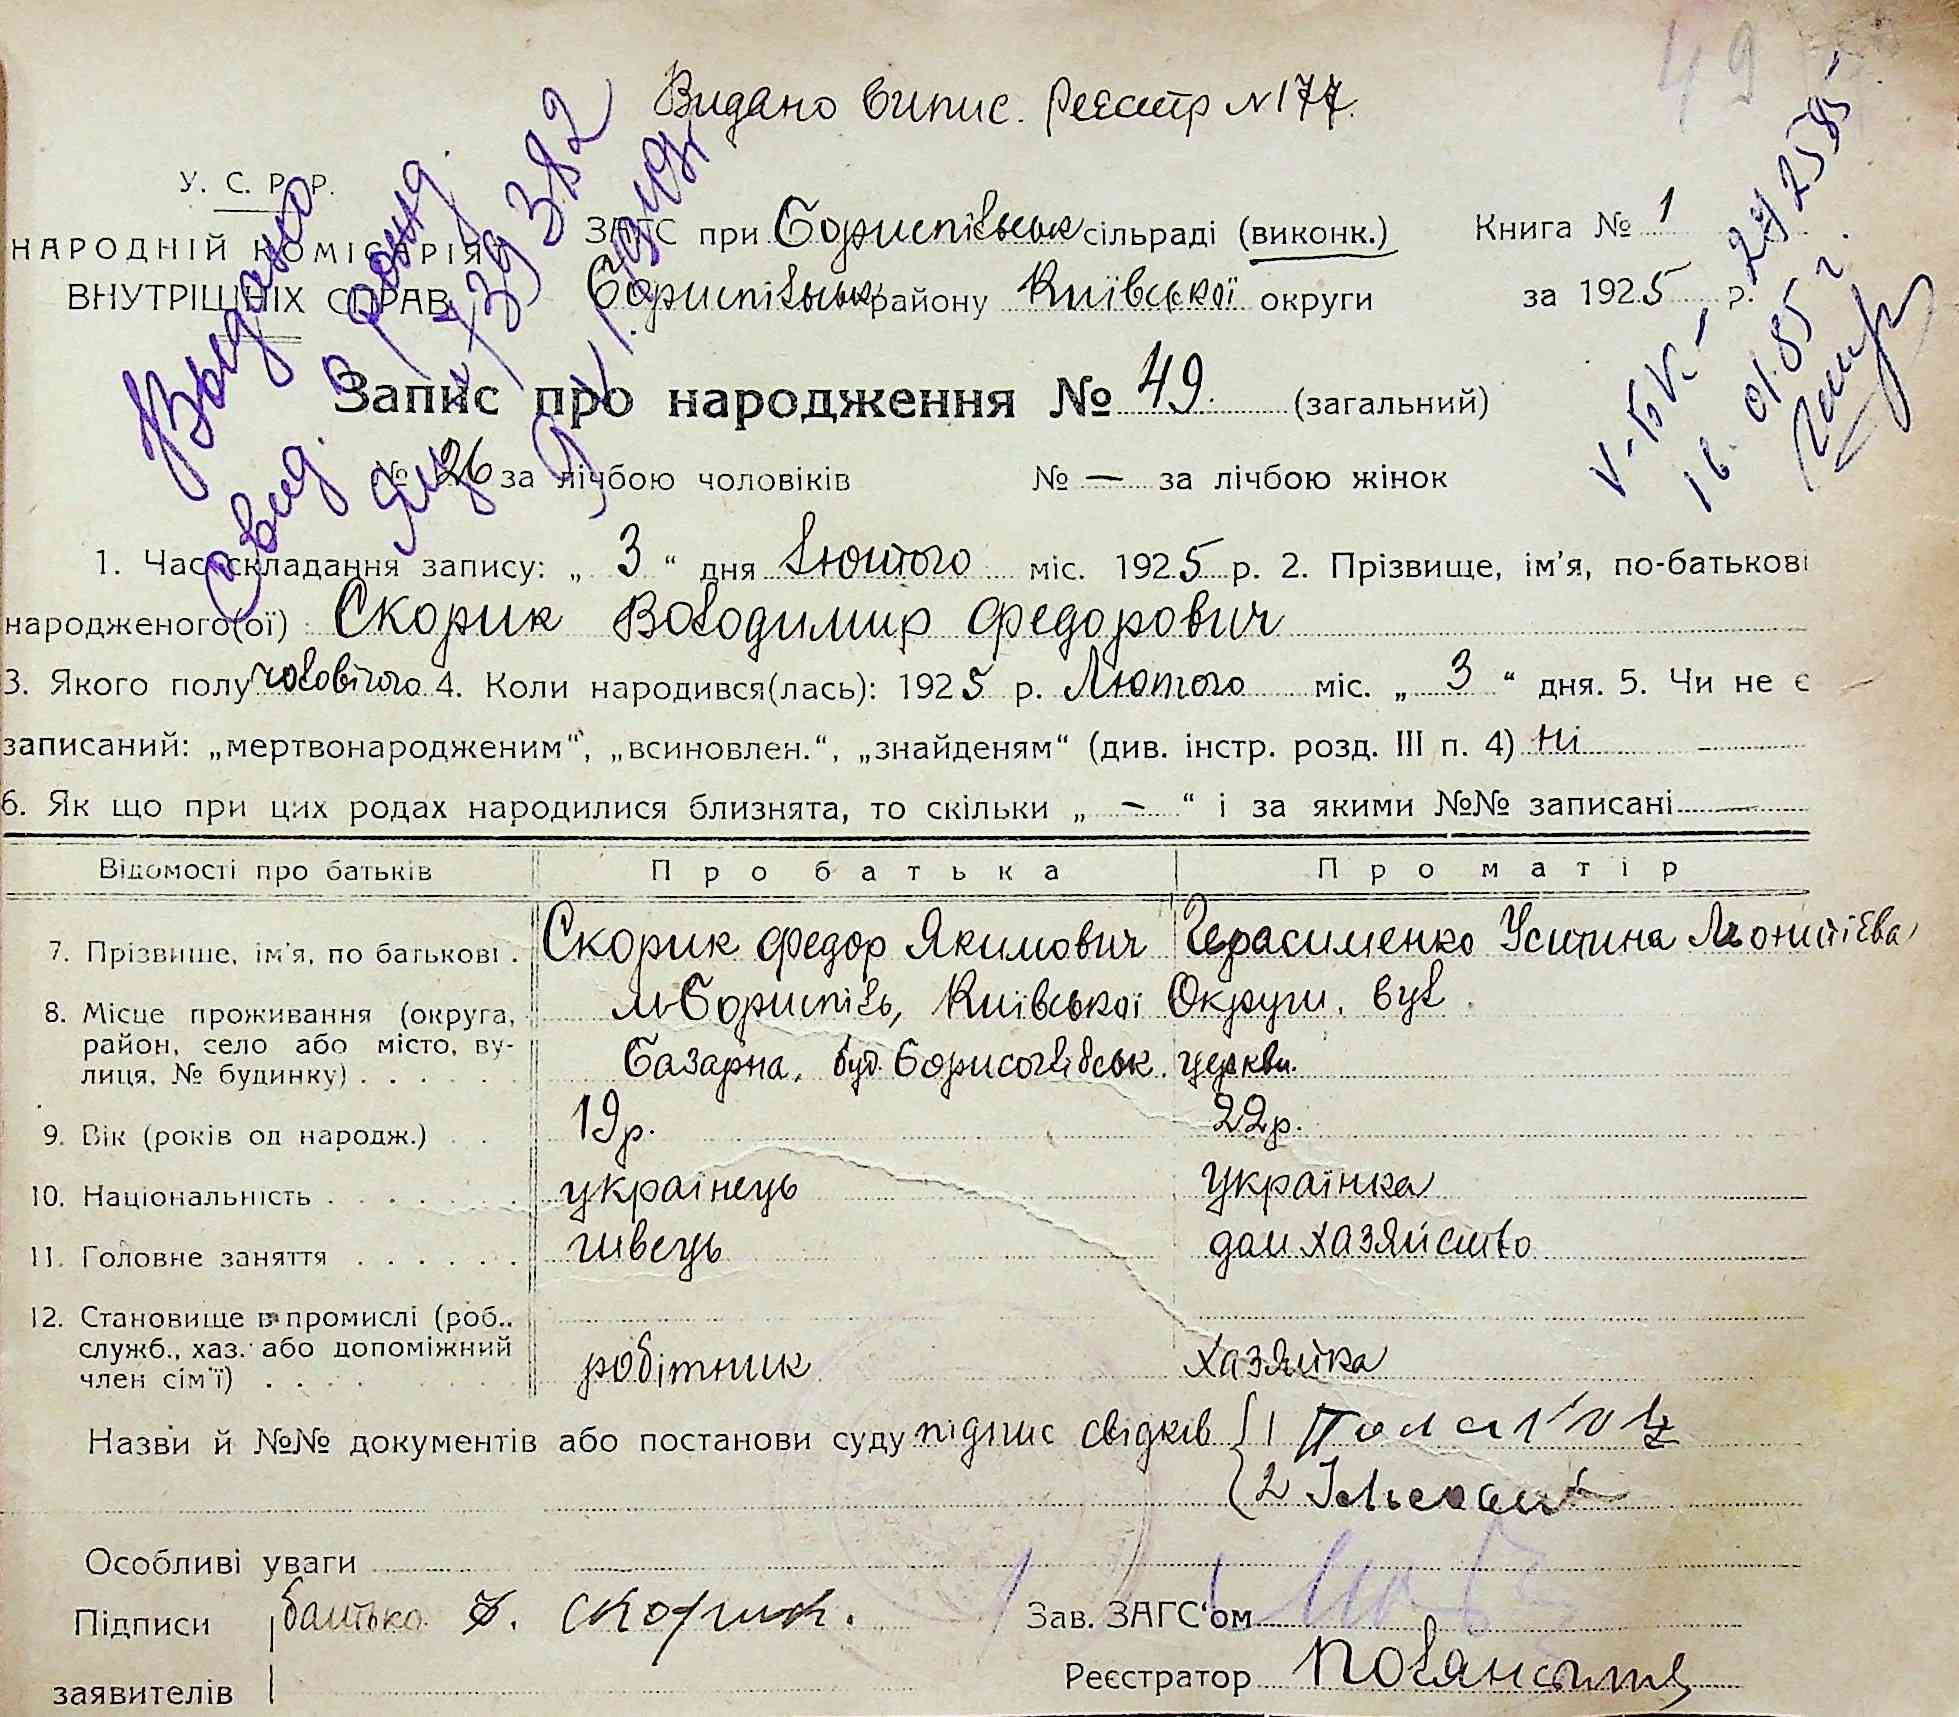 49
Видано випис. Реєстр №177.
У. С. Р. Р.
НАРОДНІЙ КОМІСАРІЯТ
ВНУТРІШНІХ СПРАВ
ЗАГС при Бориспільськ сільраді (виконк.)
Бориспільськ району Київської округи
Книга № 1
за 1925 р.
Выдано
свид. о рожд.
V-БК-
16.01.85 г.
Запис про народження № 49. (загальний)
№ 26 за лічбою чоловіків № — за лічбою жінок
1. Час складання запису: „ 3 “ дня лютого міс. 1925 р. 2. Прізвище, ім’я, по-батькові
народженого(ої) Скорик Володимир Федорович
3. Якого полу чоловічого 4. Коли народився(лась): 1925 р. Лютого міс. „ 3 “ дня. 5. Чи не є
записаний: „мертвонародженим“, „всиновлен.“, „знайденям“ (див. інстр. розд. III п. 4) ні —
6. Як що при цих родах народилися близнята, то скільки „ — “ і за якими №№ записані —
Відомості про батьків Про батька Про матір
7. Прізвище, ім’я, по батькові . Скорик Федор Якимович Герасименко Устина
8. Місце проживання (округа, район, село або місто, ву-лиця, № будинку) . . . . . м Бориспіль, Київської Округи, вул.
Базарна, буд. Борисоглібськ. церкви.
9. Вік (років од народж.) . . 19р. 22р.
10. Національність . . . . . . . українець українка
11. Головне заняття . . . . . . швець дом хазяйство
12. Становище в промислі (роб., служб., хаз. або допоміжний член сім’ї) . . . . робітник хазяйка
Назви й №№ документів або постанови суду підпис свідків 1
2
Особливі уваги
Підписи батько Ф. Скорик.
заявителів
Зав. ЗАГС‘ом
Реєстратор